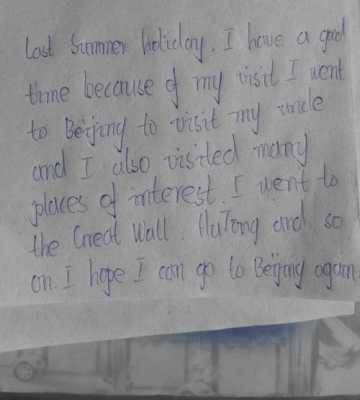 Last Summer holiday. I have a good
time because of my visit I went
to Beijing to visit my uncle
and I also visited many
places of interest. I went to
the Great Wall. HuTong and so
on. I hope I can go to Beijing again.